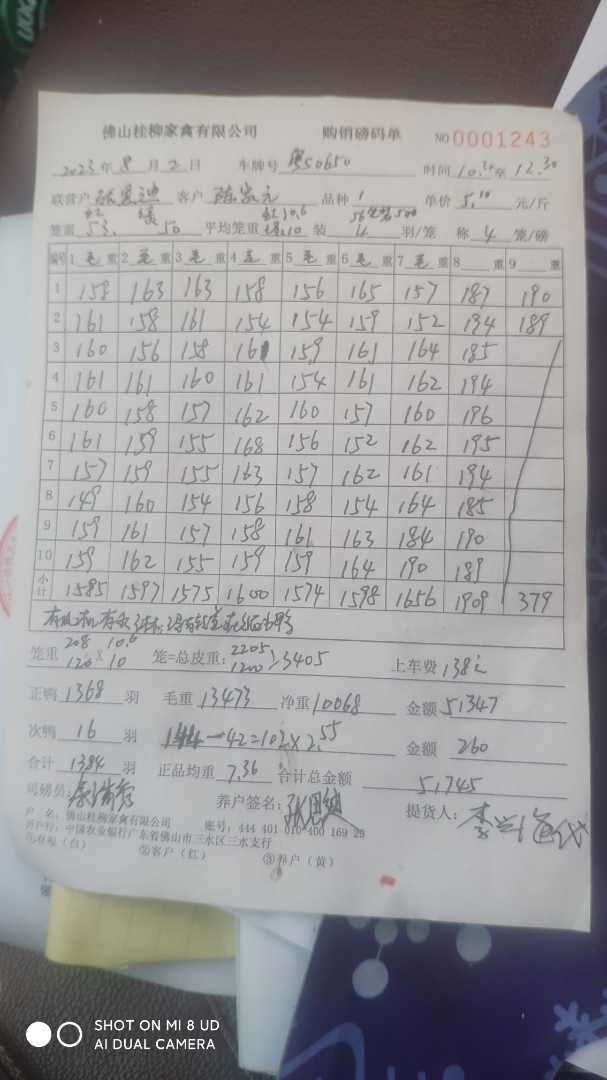 佛山桂柳家禽有限公司 购销磅码单 NO 0001243
2023年8月2日 车牌号 粤S0650 时间 10.20至12.30
联营户 客户 陈家元 品种 1 单价 5.10 元/斤
红 绿 红10.6 500
笼重 53. 50 平均笼重 绿.10 装 4 羽/笼 称 4 笼/磅
编号 1毛重 2毛重 3毛重 4毛重 5毛重 6毛重 7毛重 8 重 9 重
1 158 163 163 158 156 165 157 187 190
2 161 158 161 154 154 159 152 194 189
3 160 156 158 161 159 161 164 185
4 161 161 160 161 154 161 162 194
5 160 158 157 162 160 157 160 196
6 161 159 155 168 156 152 162 195
7 157 159 155 163 157 162 161 194
8 149 160 154 156 158 154 164 185
9 159 161 157 158 161 163 184 190
10 159 162 155 159 159 164 190 189
小计 1585 1597 1575 1600 1574 1598 1656 1909 379
笼重 208 10.6 笼=总皮重: 2205 3405 上车费 138
120 × 10 1200
正鸭 1368 羽 毛重 13473 净重 10068 金额 51347
次鸭 16 羽 144-42=102×2.55 金额 260
合计 1384 羽 正品均重 7.36 合计总金额 51745
司磅员: 养户签名: 提货人:
户 名: 佛山桂柳家禽有限公司 账号: 444 401 010 400 169 25
开户行: 中国农业银行广东省佛山市三水区三水支行
①存根(白) ②客户(红) ③养户(黄)
SHOT ON MI 8 UD
AI DUAL CAMERA